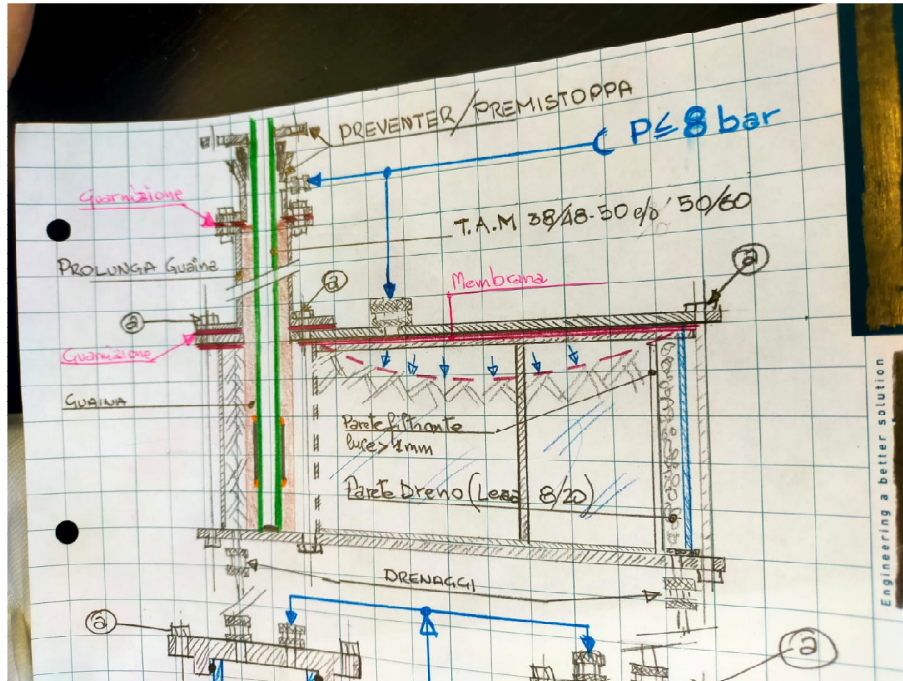 PREVENTER/PREMISTOPPA
P≤8 bar
Guarnizione
T.A.M 38/48-50 e/o 50/60
PROLUNGA Guaina
a
Membrana
a
a
Guarnizione
GUAINA
Parete filtrante
luce > 1mm
Parete Dreno (Leca 8/20)
DRENAGGI
a
a
Engineering a better solution